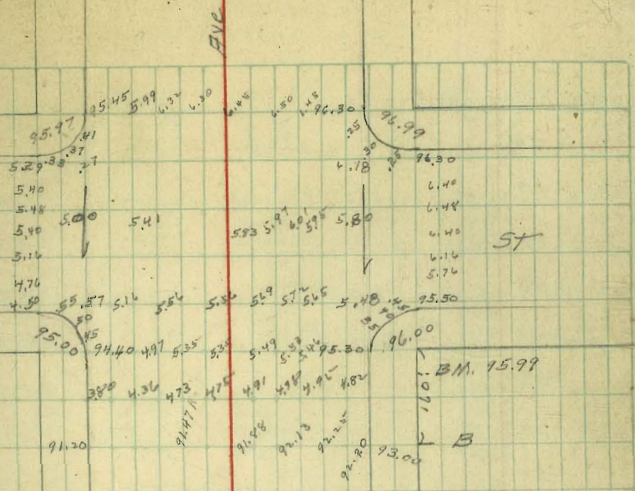 Ave
95.45 5.99 6.32 6.30 6.45 6.50 6.45 96.30
95.97 .41 .25 96.99
5.29 .33 .37 .27 .30 .25 96.30
5.40 6.18 6.40
5.48 5.00 5.41 5.83 5.97 6.01 5.95 5.80 6.48
5.40 6.40 St
5.16 6.16
4.76 5.76
4.50 .55 .57 5.16 5.56 5.56 5.69 5.72 5.65 5.48 .45 95.50
.50 .40
95.00 .45 .35 96.00
94.40 4.97 5.35 5.35 5.49 5.53 5.46 95.30
BM. 95.99
3.80 4.36 4.73 4.75 4.91 4.98 4.95 4.82
91.20 91.47 91.88 92.13 92.25 92.20 93.00 B